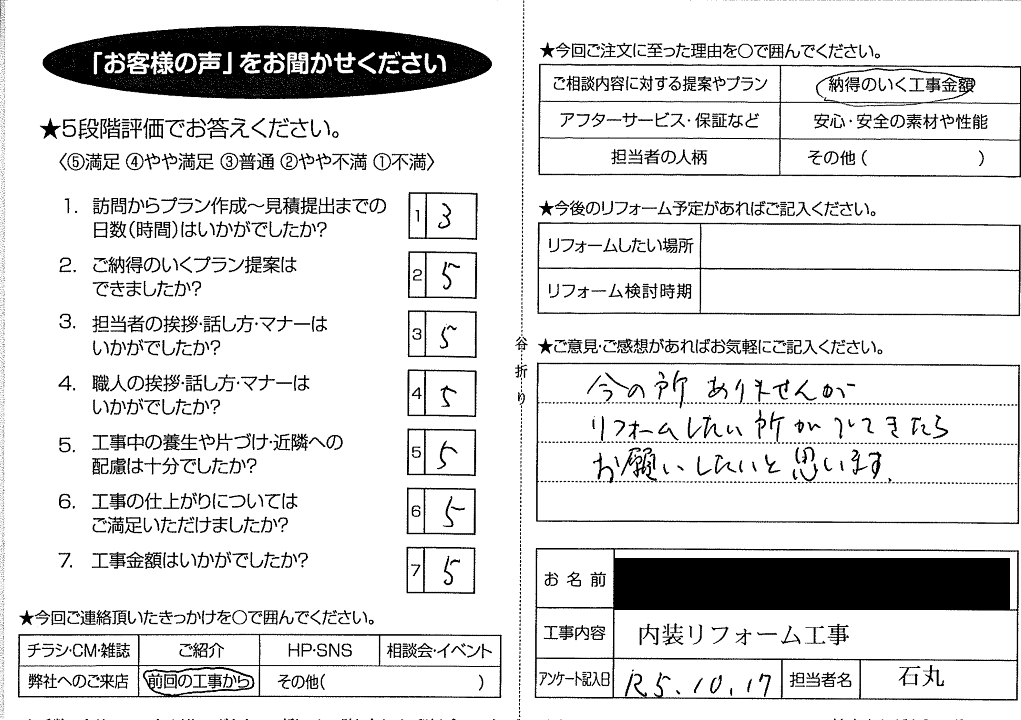 「お客様の声」をお聞かせください
★5段階評価でお答えください。
〈⑤満足 ④やや満足 ③普通 ②やや不満 ①不満〉
1. 訪問からプラン作成〜見積提出までの
日数(時間)はいかがでしたか?
1 3
2. ご納得のいくプラン提案は
できましたか?
2 5
3. 担当者の挨拶・話し方・マナーは
いかがでしたか?
3 5
4. 職人の挨拶・話し方・マナーは
いかがでしたか?
4 5
5. 工事中の養生や片づけ・近隣への
配慮は十分でしたか?
5 5
6. 工事の仕上がりについては
ご満足いただけましたか?
6 5
7. 工事金額はいかがでしたか?
7 5
★今回ご連絡頂いたきっかけを○で囲んでください。
チラシ・CM・雑誌 ご紹介 HP・SNS 相談会・イベント
弊社へのご来店 前回の工事から その他( )
谷折り
★今回ご注文に至った理由を○で囲んでください。
ご相談内容に対する提案やプラン 納得のいく工事金額
アフターサービス・保証など 安心・安全の素材や性能
担当者の人柄 その他( )
★今後のリフォーム予定があればご記入ください。
リフォームしたい場所
リフォーム検討時期
★ご意見・ご感想があればお気軽にご記入ください。
今の所 ありませんが
リフォームしたい所がでてきたら
お願いしたいと思います.
お名前
工事内容 内装リフォーム工事
アンケート記入日 R5.10.17 担当者名 石丸